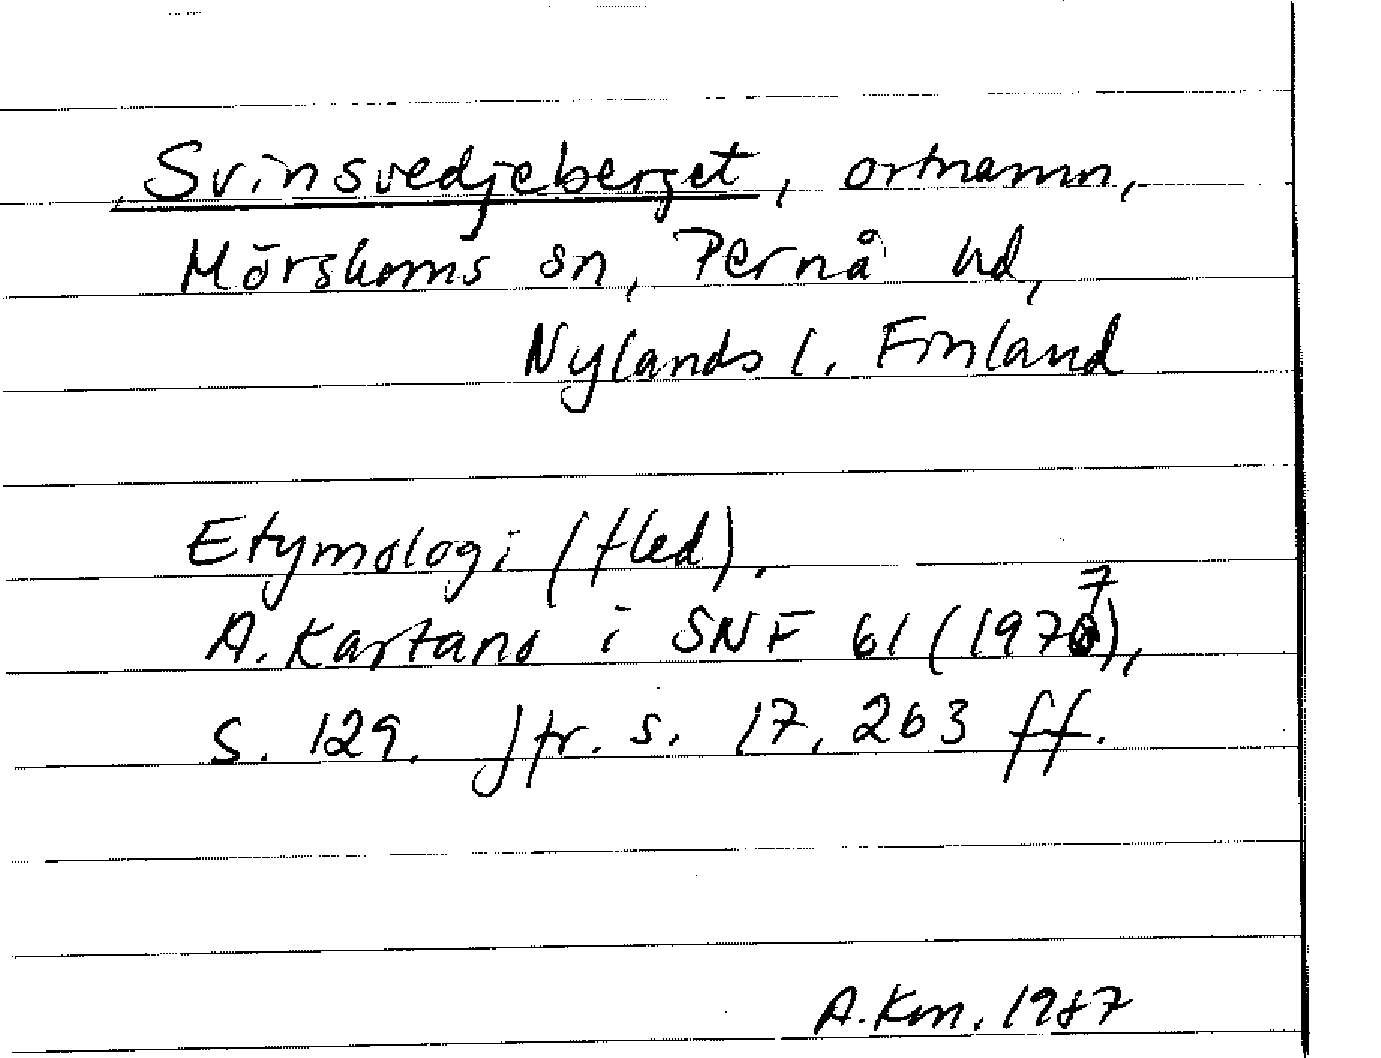 Svinsvedjeberget, ortnamn,
Mörskoms sn, Pernå hd,
Nylands l. Finland
Etymologi (fled).
A. Kartano i SNF 61 (1977),
S. 129. Jfr. s. 17, 263 ff.
A.Km. 1987